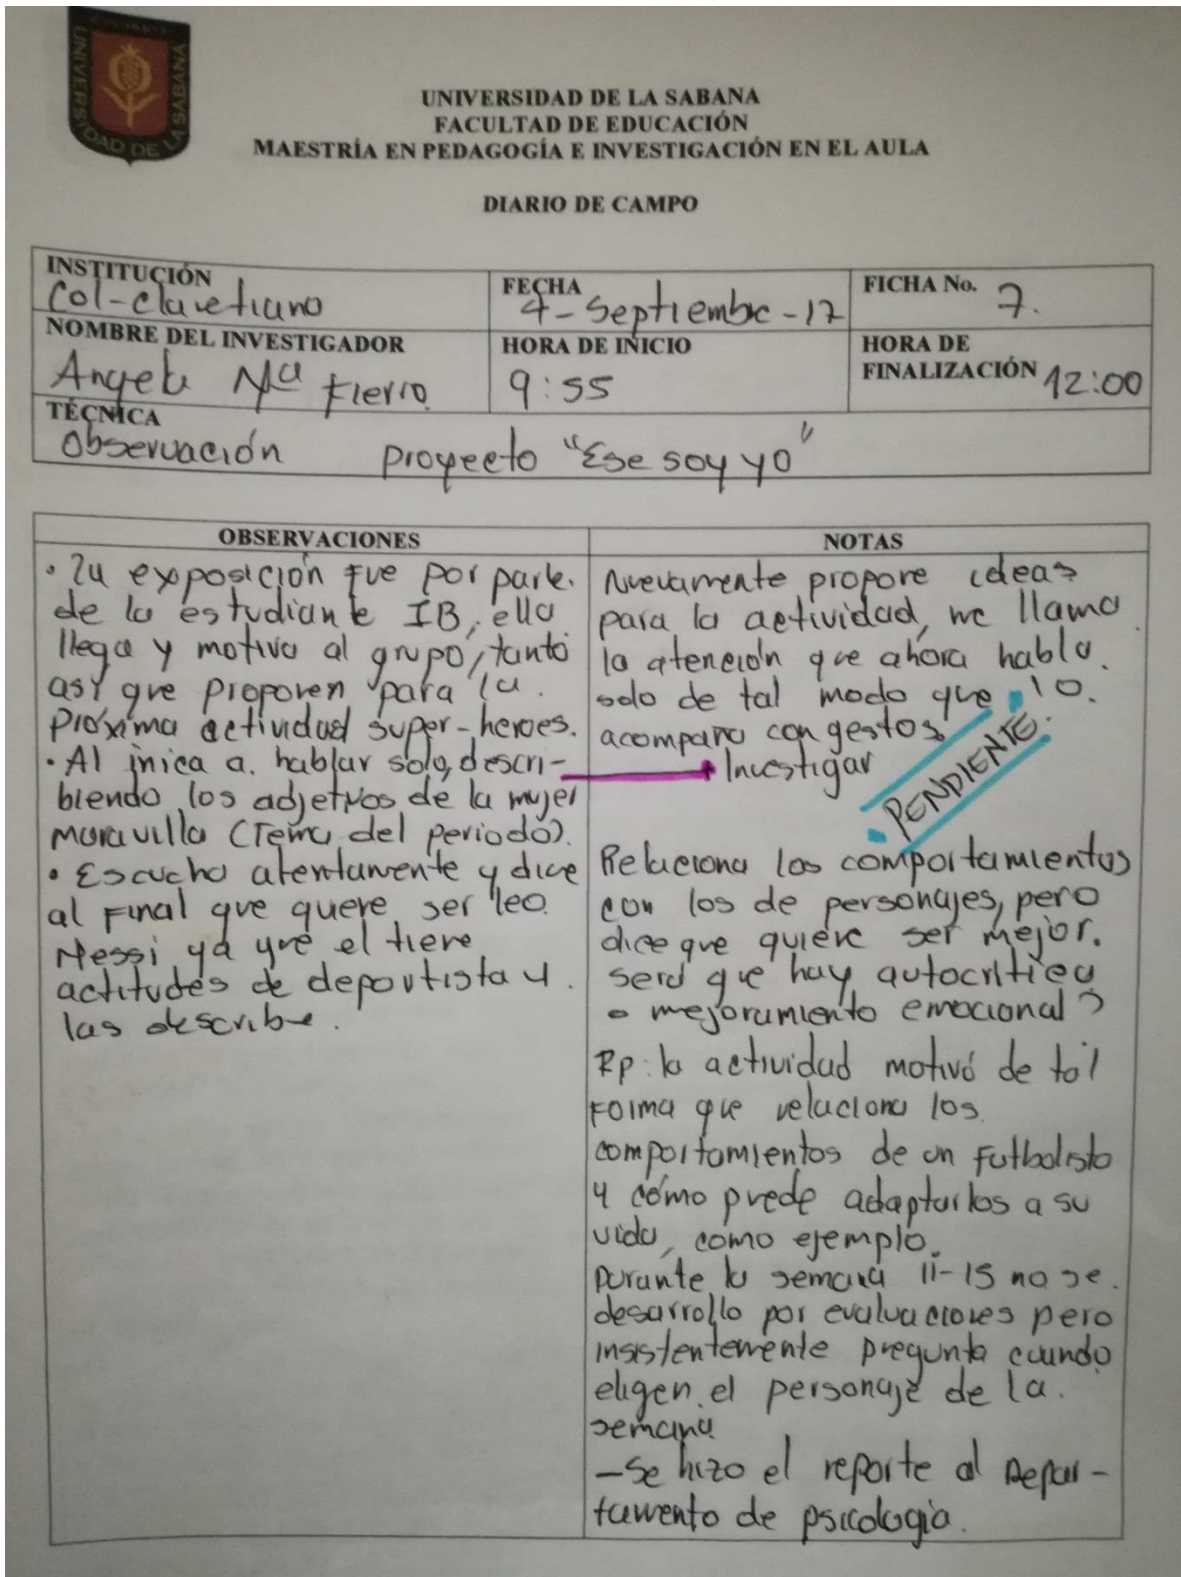 UNIVERSIDAD DE LA SABANA
UNIVERSIDAD DE LA SABANA
FACULTAD DE EDUCACIÓN
MAESTRÍA EN PEDAGOGÍA E INVESTIGACIÓN EN EL AULA
DIARIO DE CAMPO
INSTITUCIÓN
Col-claretiano
FECHA
4-Septiembre-17
FICHA No. 7.
NOMBRE DEL INVESTIGADOR
Angela Mª Fierro
HORA DE INICIO
9:55
HORA DE
FINALIZACIÓN 12:00
TÉCNICA
Observación proyecto "Ese soy yo"
OBSERVACIONES
• 2ª exposición fue por parte.
de la estudiante IB, ella
llega y motiva al grupo, tanto
así que proponen para la.
próxima actividad super-heroes.
• Al inica a. hablar solo, descri-
biendo los adjetivos de la mujer
maravilla (Tema del periodo).
• Escucha atentamente y dice
al final que quere ser leo
Messi ya que el tiene
actitudes de deportista y.
las describe.
NOTAS
Nuevamente propone ideas
para la actividad, me llama
la atención que ahora habla.
solo de tal modo que lo.
acompaña con gestos.
Investigar
PENDIENTE.
Relaciona los comportamientos
con los de personajes, pero
dice que quiere ser mejor.
será que hay autocrítica
o mejoramiento emocional?
Rp: la actividad motivó de tal
forma que relaciona los.
comportamientos de un futbolista
y cómo puede adaptarlos a su
vida, como ejemplo.
Durante la semana 11-15 no se.
desarrollo por evaluaciones pero
insistentemente pregunta cuando
eligen el personaje de la.
semana
-Se hizo el reporte al Depar-
tamento de psicología.